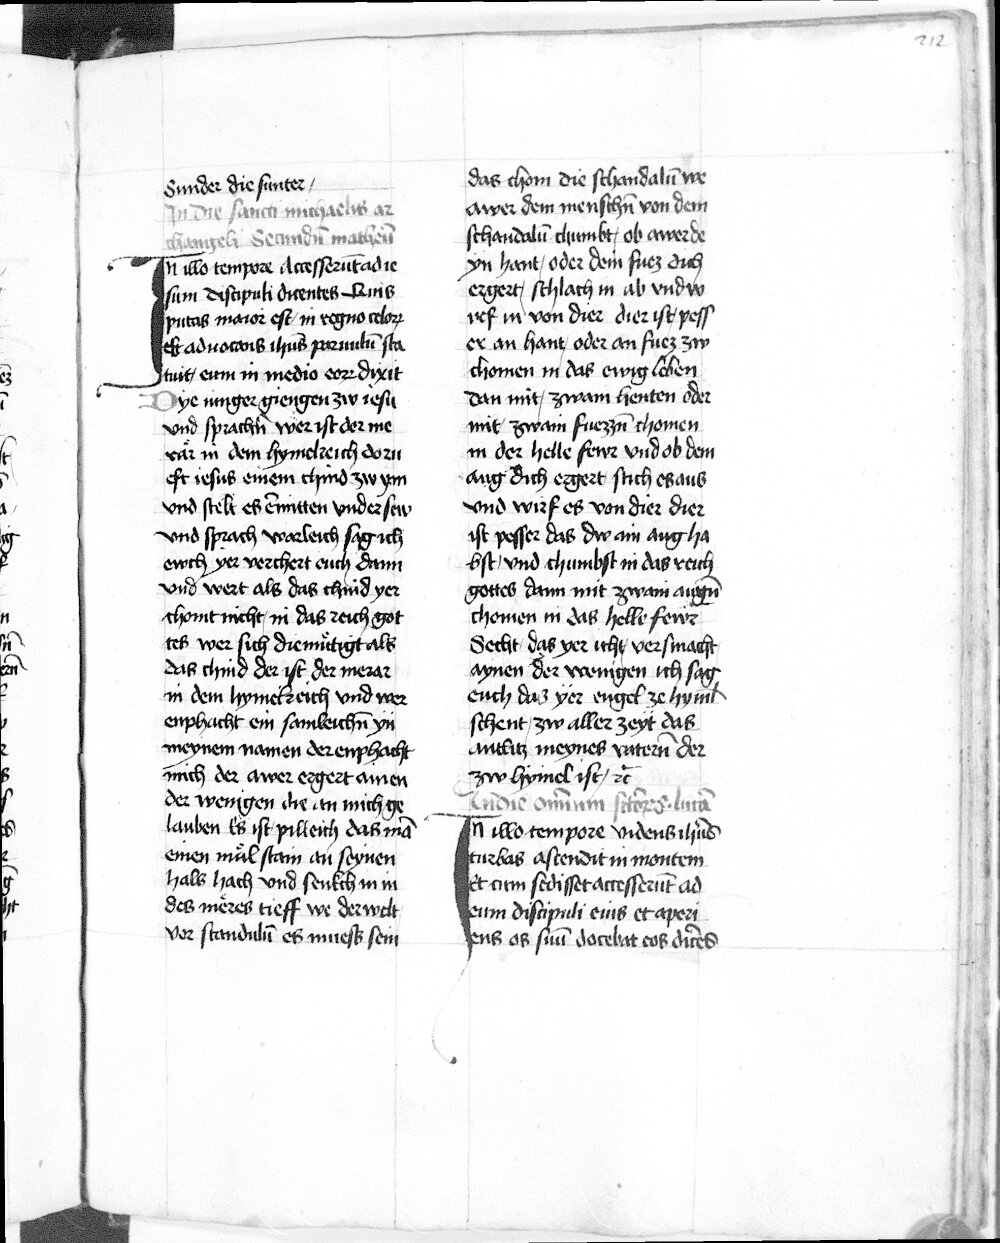 212
Sunder die sunter /
In die sancti michaelis ar
changeli Secundū matheū
In illo tempore Accesserūt ad ie
sum discipuli dicentes Quis
putas maior est / in regno celoꝝ
Et aduocans ihūs paruulū sta
tuit / eum in medio eoꝝ dixit
Dye iunger giengen zw iesu
vnd sprachn̄ wer ist der me
rär in dem hymelreich do ru
eft iesus einem chind zw ym
vnd stelt es ēmitten vnder sew
vnd sprach warleich sag ich
ewch yer verchert euch dann
vnd wert als das chind yer
chomt nicht / in das reich got
tes wer sich diemůtigt als
das chind der ist der merar
in dem hymelreich vnd wer
enphacht ein samleichn̄ yn
meynem namen der enphacht
mich der awer ergert ainen
der wenigen die an mich ge
lauben Es ist pilleich das mā
einen můl stain an seynen
hals hach vnd senkch in in
des meres tieff we der welt
vor scandulū es muess sein
das chom die schandalū we
awer dem menschn̄ von dem
schandalū chumbt / ob awer de
yn hant / oder dein fuez dich
ergert / schlach in ab vnd w
erf in von dier dier ist / pess
er an hant / oder an fuez zw
chomen in das ewig leben
dan mit / zwain henten oder
mit / zwain fuezzn̄ chomen
in der helle fewr vnd ob dem
aug dich ergert / stich es aus
vnd wirf es von dier dier
ist pesser das dw ain aug ha
bst / vnd chumbst in das reich
gottes dann mit zwain augn̄
chomen in das helle fewr
Secht / das yer icht / versmacht
aynen der wenigen ich sag
euch das yer engel ze hyml
schent / zw aller zeyt das
antlitz meynes vatern̄ der
zw hymel ist / ꝛc̄
In die om̄ium sctōrꝫ lucā
In illo tempore videns ihūs
turbas ascendit in montem
Et cum sedisset accesserūt ad
eum discipuli eius et aperi
ens os suū docebat eos dicēs